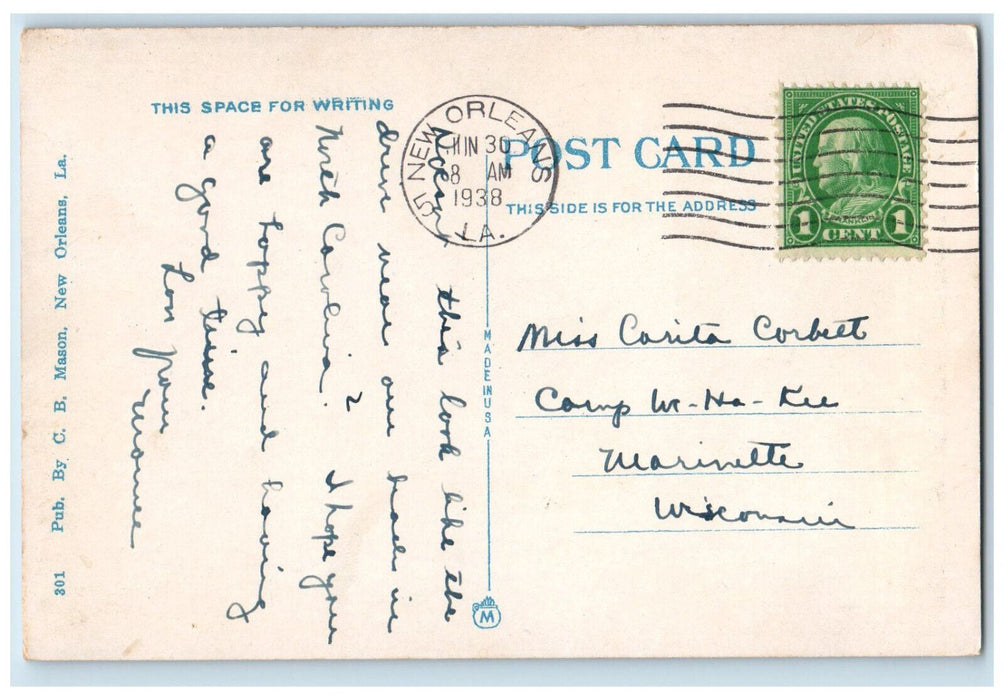 THIS SPACE FOR WRITING
Doesn't this look like the
drive near our beach in
North Carolina? I hope you
are happy and having
a good time.
Lou
301 Pub. By C. B. Mason, New Orleans, La.
NEW ORLEANS
JUN 30
8 AM
1938
LA.
POST CARD
THIS SIDE IS FOR THE ADDRESS
UNITED STATES POSTAGE
FRANKLIN
1 CENT 1
MADE IN USA
M
Miss Carita Corbett
Camp We-Ha-Kee
Marinette
Wisconsin